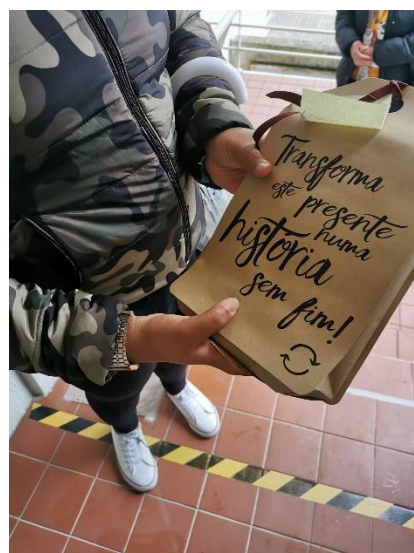 Transforma
este presente
numa
história
sem fim!